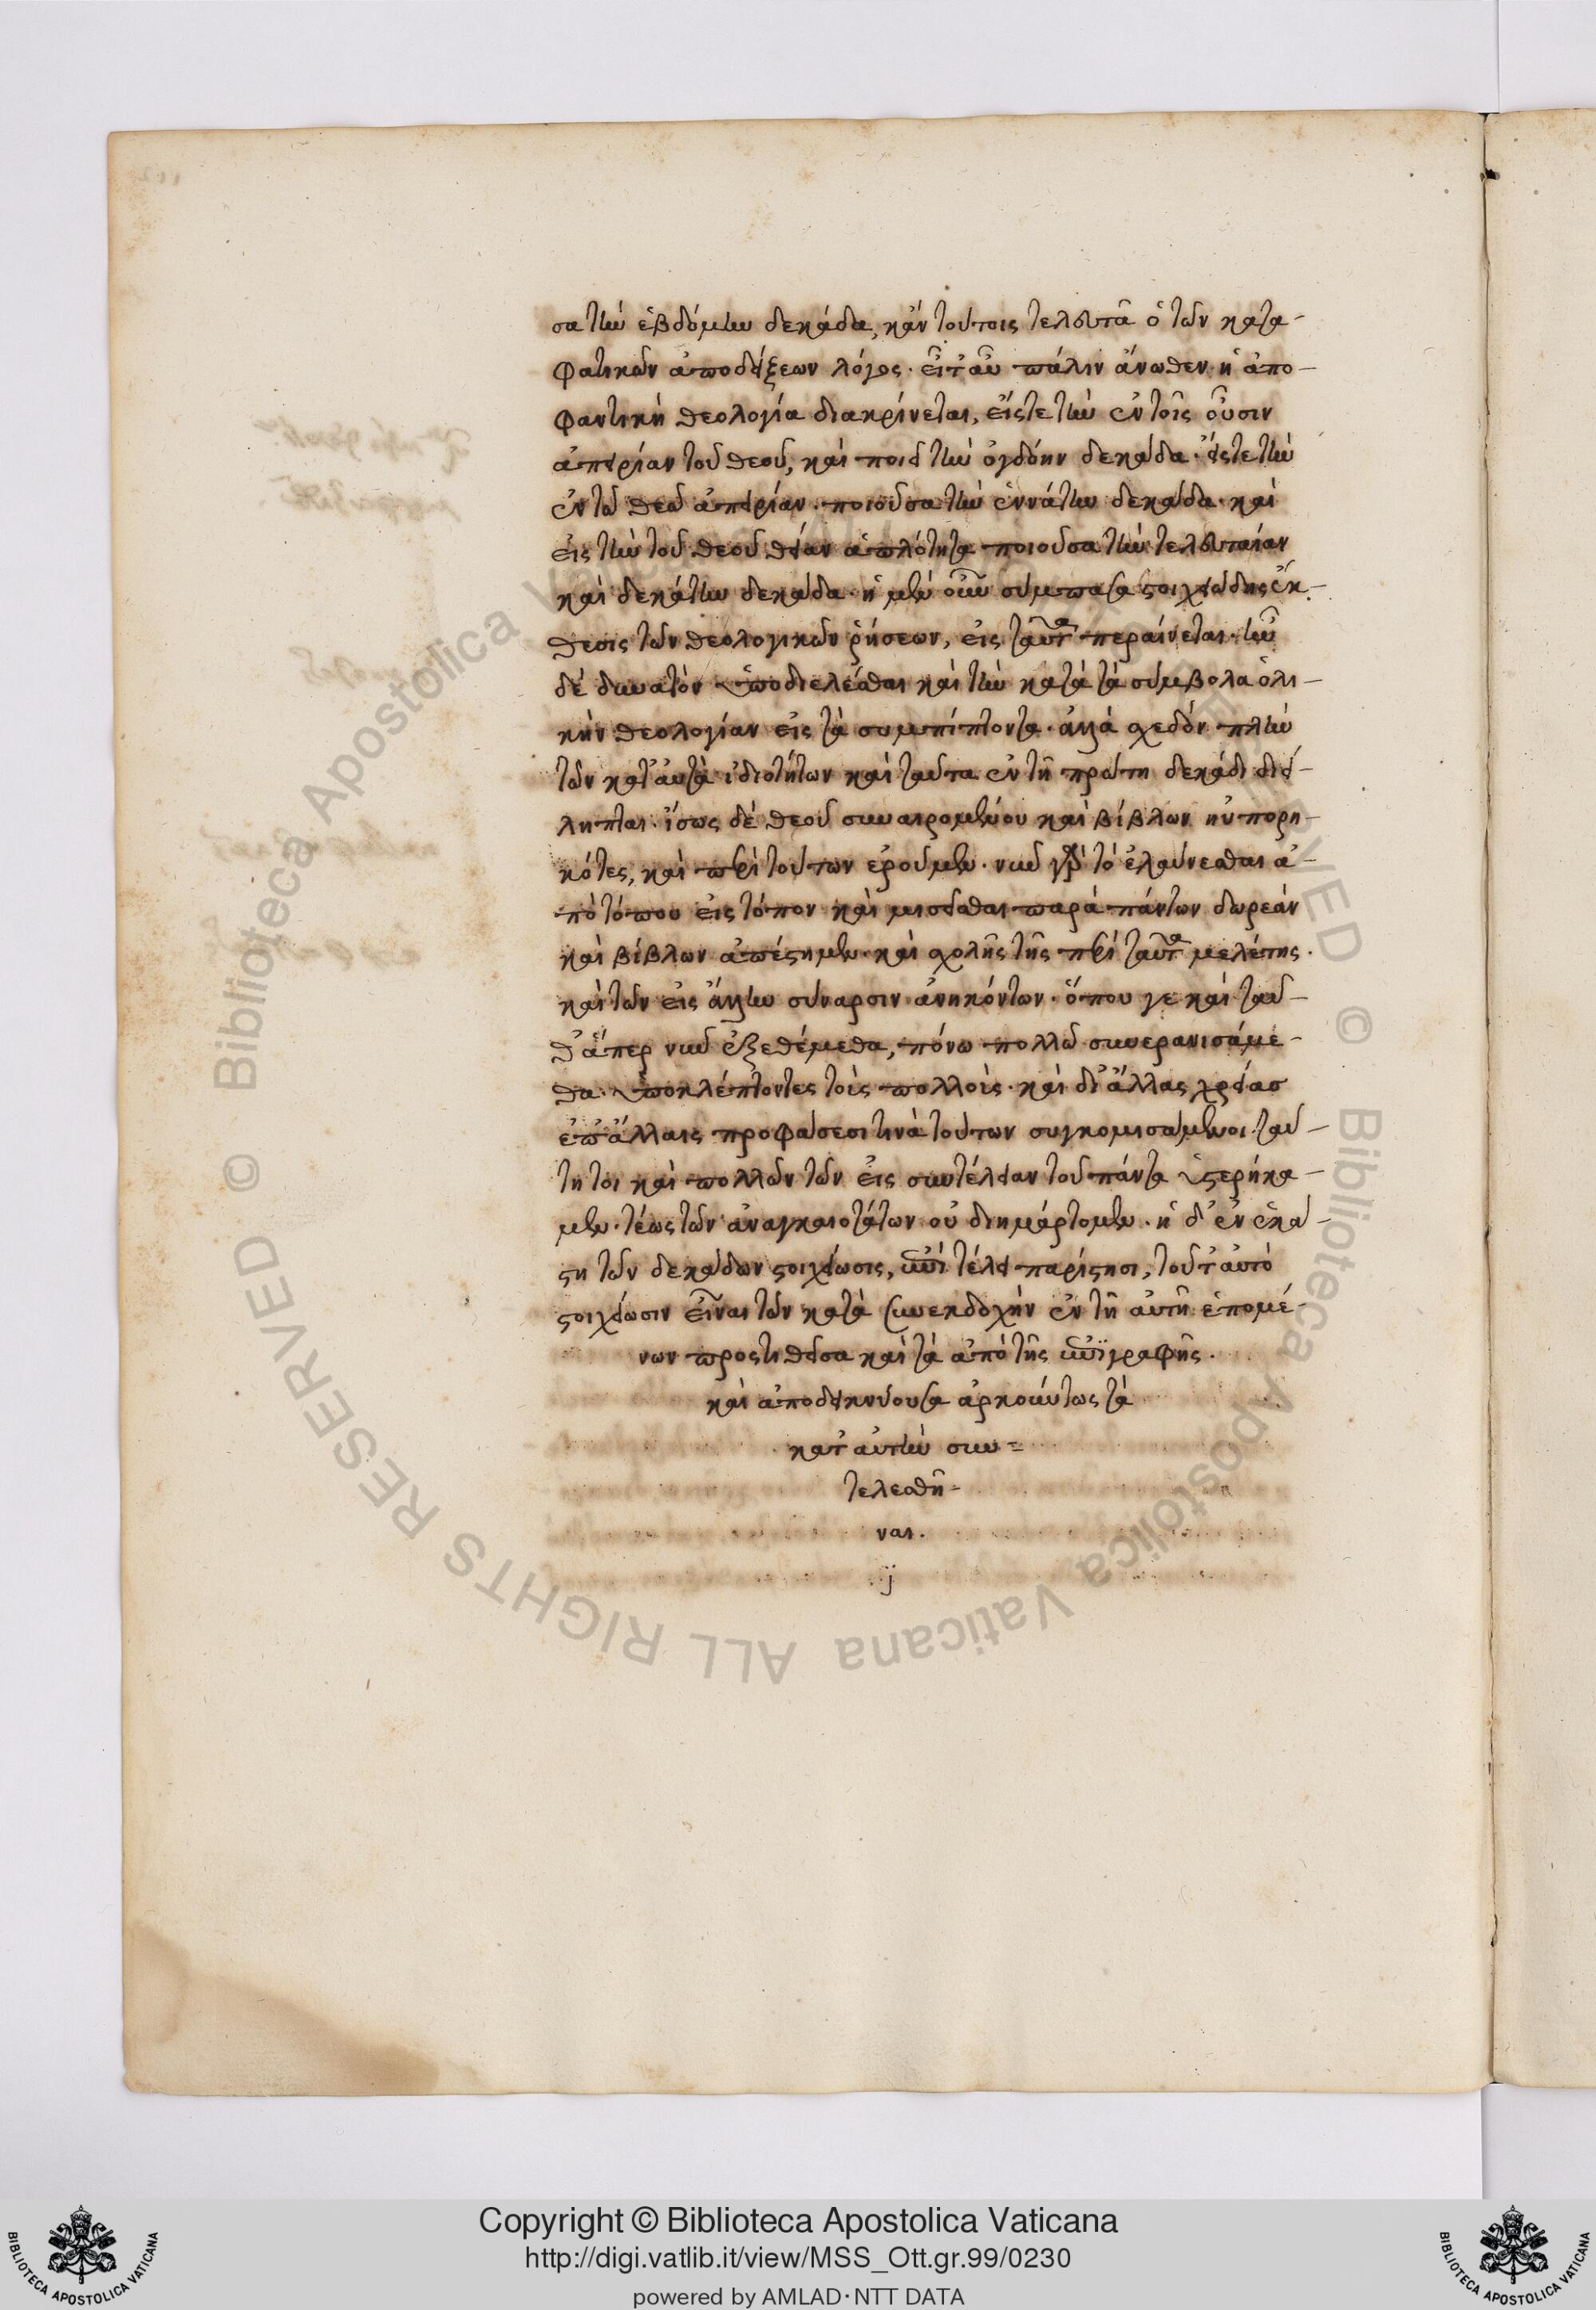 σα τὴν ἑβδόμην δεκάδα, κἀν τούτοις τελευτᾶ ὁ τῶν κατα-
φατικῶν ἀποδείξεων λόγος. εἶτ' αὖ πάλιν ἄνωθεν ἡ ἀπο-
φαντικὴ θεολογία διακρίνεται, εἴς τε τὴν ἐν τοῖς οὖσιν
ἀπειρίαν τοῦ θεοῦ, καὶ ποιεῖ τὴν ὀγδόην δεκάδα. εἴς τε τὴν
ἐν τῷ θεῷ ἀπειρίαν. ποιοῦσα τὴν ἐννάτην δεκάδα. καὶ
εἰς τὴν τοῦ θεοῦ θείαν ἁπλότητα ποιοῦσα τὴν τελευταίαν
καὶ δεκάτην δεκάδα. ἡ μὲν οὖν σύμπασα στοιχειώδης ἔκ-
θεσις τῶν θεολογικῶν ῥήσεων, εἰς ταῦτα περαίνεται. ἦν
δὲ δυνατὸν ὑποδιελέσθαι καὶ τὴν κατὰ τὰ σύμβολα ὁλι-
κὴν θεολογίαν εἰς τὰ συμπίπτοντα. ἀλλὰ σχεδὸν πλὴν
τῶν κατ' αὐτὰ ἰδιοτήτων καὶ ταῦτα ἐν τῇ πρώτῃ δεκάδι διεί-
ληπται. ἴσως δὲ θεοῦ συναιρομένου καὶ βίβλων ηὐπορη-
κότες, καὶ περὶ τούτων ἐροῦμεν. νῦν γὰρ τὸ ἐλαύνεσθαι ἀ-
πὸ τόπου εἰς τόπον καὶ μισεῖσθαι παρὰ πάντων δωρεὰν
καὶ βίβλων ἀπέστημεν. καὶ σχολῆς τῆς περὶ ταῦτα μελέτης.
καὶ τῶν εἰς ἄλλην σύναρσιν ἀνηκόντων. ὅπου γε καὶ ταῦ-
θ' ἅπερ νῦν ἐξεθέμεθα, πόνω πολλῶ συνερανισάμε-
θα. ὑποκλέπτοντες τοὺς πολλοὺς. καὶ δι' ἄλλας χρείας
ἐπ' ἄλλαις προφάσεσι τινὰ τούτων συγκομισάμενοι. ταύ-
τῃ τοι καὶ πολλῶν τῶν εἰς συντέλειαν τοῦ πάντα ὑστερήκα-
μεν. τέως τῶν ἀναγκαιοτάτων οὐ διημάρτομεν. ἡ δ' ἐν ἑκά-
στη τῶν δεκάδων στοιχείωσις, ἐπὶ τέλει παρίστησι, τοῦτ' αὐτὸ
στοιχείωσιν εἶναι τῶν κατὰ συνεκδοχὴν ἐν τῇ αὐτῇ ἑπομέ-
νων προστιθεῖσα καὶ τὰ ἀπὸ τῆς ἐπιγραφῆς.
καὶ ἀποδεικνύουσα ἀρκούντως τὰ
κατ' αὐτὴν συν=
τελεσθῆ-
ναι.